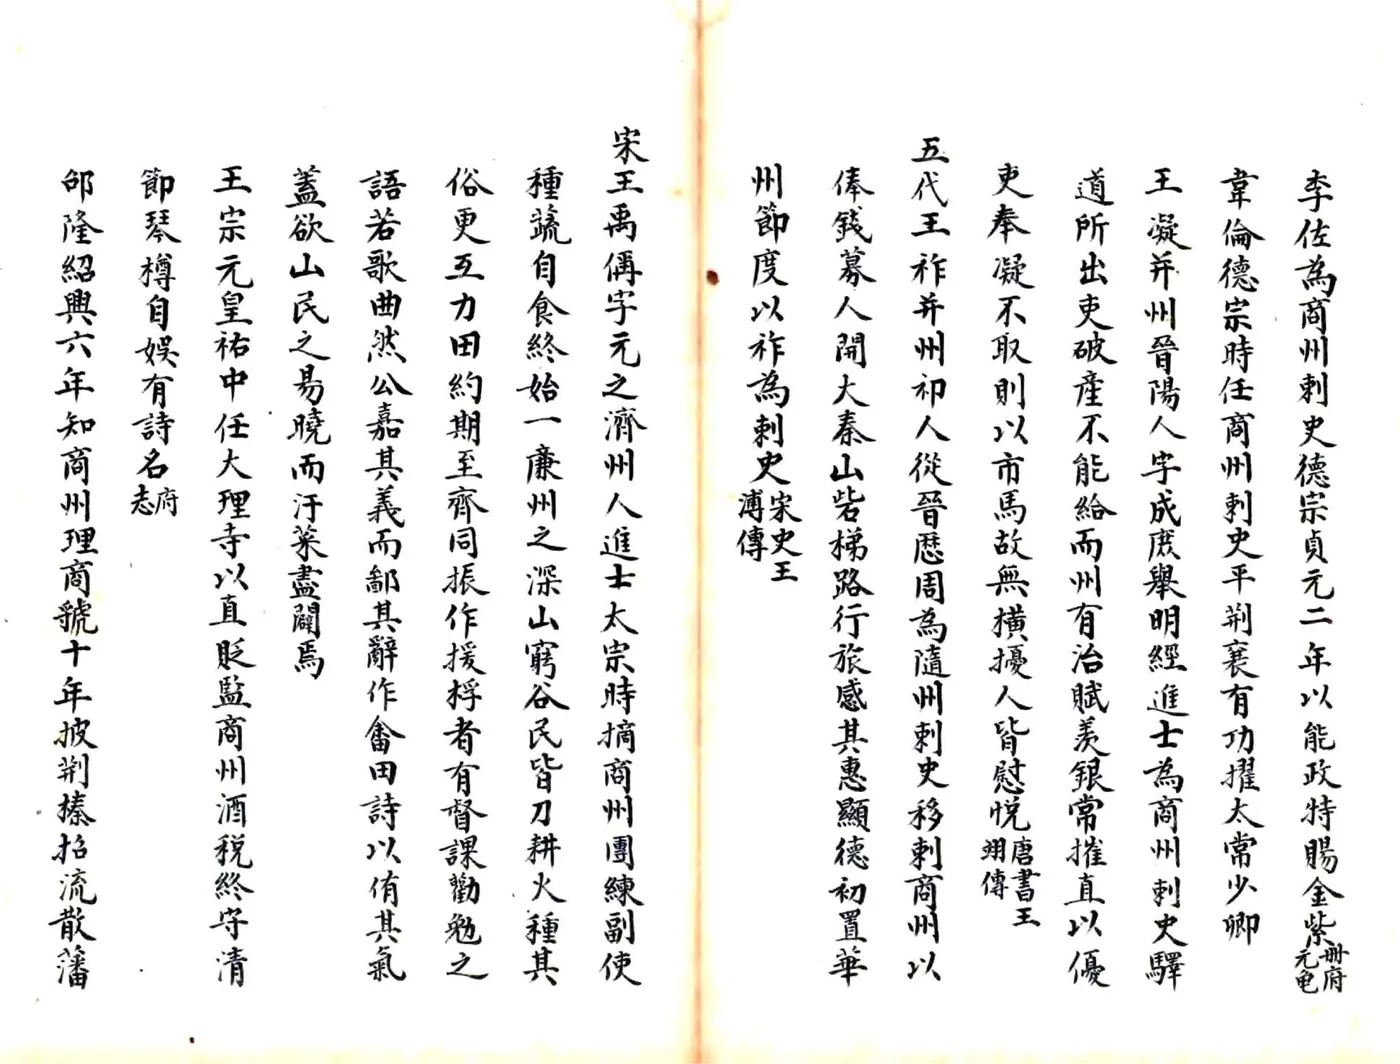 李佐為商州刺史德宗貞元二年以能政特賜金紫冊府元龟
韋倫德宗時任商州刺史平荆襄有功擢太常少卿
王凝并州晉陽人字成庶舉明經進士為商州刺史驛
道所出吏破產不能給而州有治賦羡銀常摧直以優
吏奉凝不取則以市馬故無橫擾人皆慰悅唐書王翊傳
五代王祚并州祁人從晉歷周為隨州刺史移刺商州以
俸錢募人開大秦山岩梯路行旅感其惠顯德初置華
州節度以祚為刺史宋史王溥傳
宋王禹偁字元之濟州人進士太宗時摘商州團練副使
種蔬自食終始一廉州之深山窮谷民皆刀耕火種其
俗更互力田約期至齊同振作援桴者有督課勸勉之
語若歌曲然公嘉其義而鄙其辭作畬田詩以侑其氣
蓋欲山民之易曉而汙萊盡闢焉
王宗元皇祐中任大理寺以直貶監商州酒稅終守清
節琴樽自娛有詩名府志
邵隆紹興六年知商州理商虢十年披荆榛招流散藩